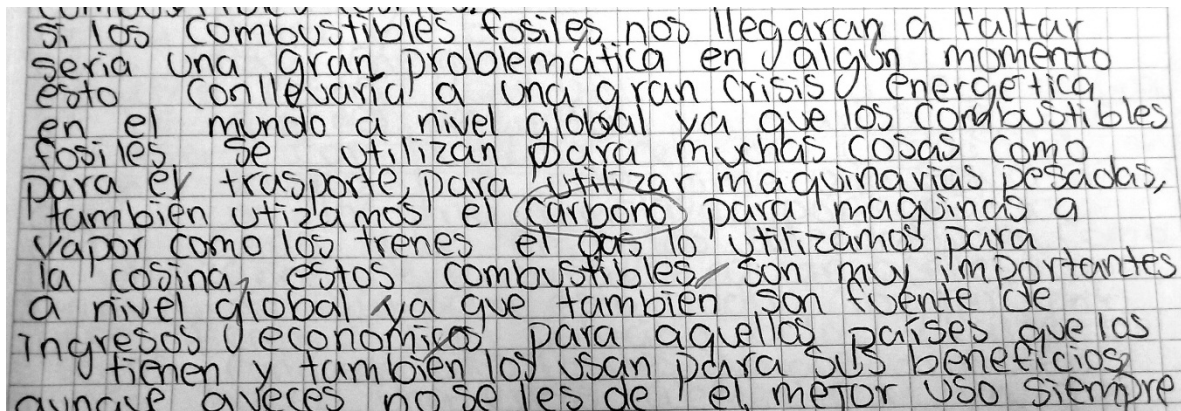 si los combustibles fosiles nos llegaran a faltar
seria una gran problemática en algún momento
esto conllevaría a una gran crisis energética
en el mundo a nivel global ya que los combustibles
fosiles se utilizan para muchas cosas como
para el trasporte, para utilizar maquinarias pesadas,
tambien utizamos el carbono para maquinas a
vapor como los trenes el gas lo utilizamos para
la cosina, estos combustibles son muy importantes
a nivel global ya que también son fuente de
ingresos economicos para aquellos países que los
tienen y también los usan para sus beneficios
aunque aveces no se les de el mejor uso siempre